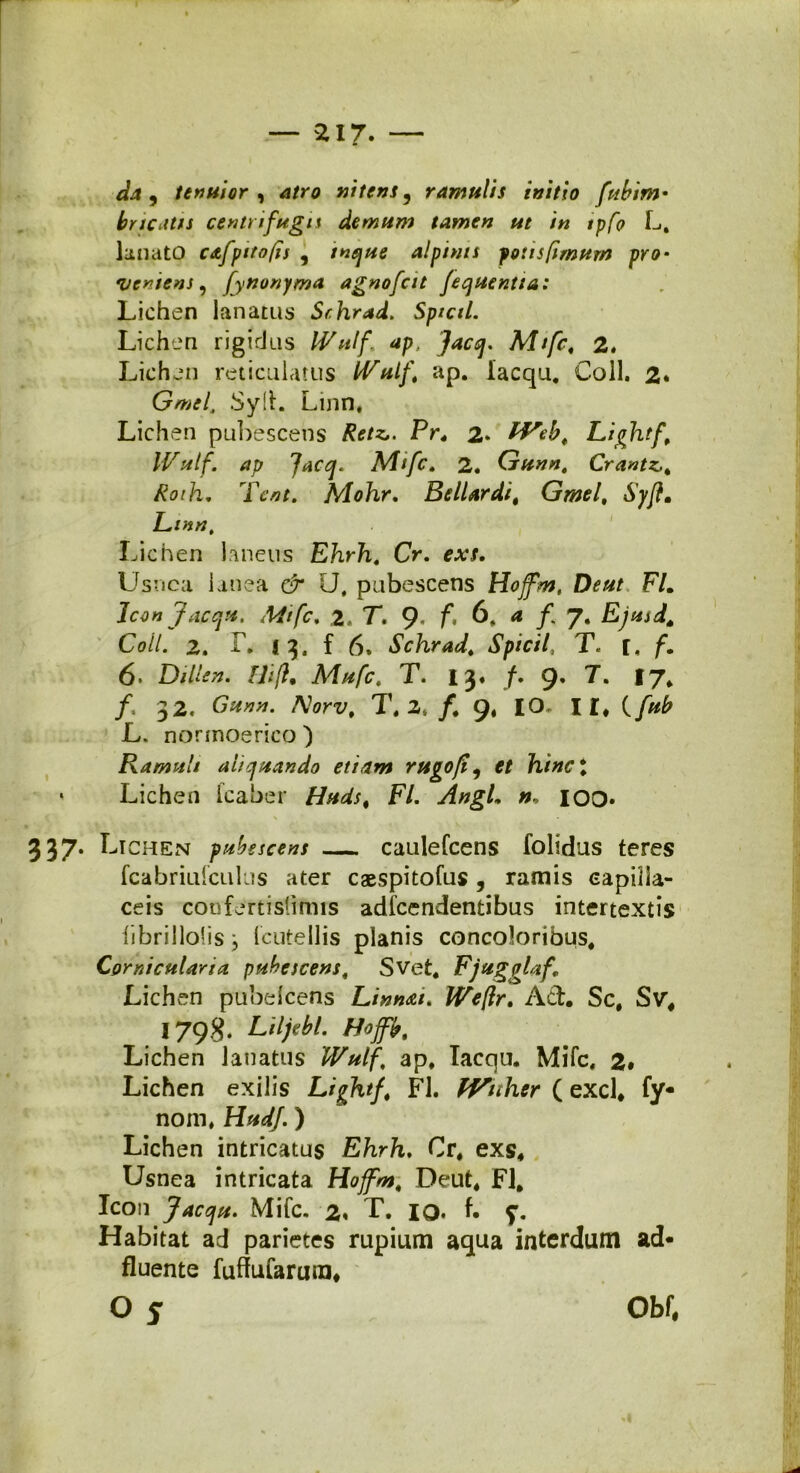 — 217. —
da, tenuior, atro nitens, ramulis initio subim-
bricatis centrifugis demum tamen ut in ipſo L.
lanato cæſpitoſis, inque alpinis potisſimum pro-
veniens, ſynonyma agnoſcit ſequentia:
Lichen lanatus Schrad. Spicil.
Lichen rigidus Wulf. ap. Jacq. Miſc. 2.
Lichen reticulatus Wulf. ap. Iacqu. Coll. 2.
Gmel. Syſt. Linn.
Lichen pubescens Retz. Pr. 2. Web. Lightf.
Wulf. ap Jacq. Miſc. 2. Gunn. Crantz.
Roth. Tent. Mohr. Bellardi. Gmel. Syſt.
Linn.
Lichen laneus Ehrh. Cr. exs.
Usnea lanea & U. pubescens Hoffm. Deut Fl.
Icon Jacqu. Miſc. 2. T. 9. f. 6. a f. 7. Ejusd.
Coll. 2. T. 13. f 6. Schrad. Spicil. T. 1. f.
6. Dillen. Hiſt. Muſc. T. 13. f. 9. T. 17.
f. 32. Gunn. Norv. T. 2. f. 9. 10. 11. (ſub
L. normoerico)
Ramuli aliquando etiam rugoſi, et hinc:
Lichen ſcaber Huds. Fl. Angl. n. 100.
337. LICHEN pubescens — cauleſcens ſolidus teres
ſcabriuſculus ater cæspitoſus, ramis capilla-
ceis confertisſimis adſcendentibus intertextis
fibrilloſis; ſcutellis planis concoloribus.
Cornicularia pubescens. Svet. Fjugglaf.
Lichen pubeſcens Linnæi. Weſtr. Act. Sc. Sv.
1798. Liljebl. Hoffb.
Lichen lanatus Wulf. ap. Iacqu. Miſc. 2.
Lichen exilis Lightf. Fl. Wuher (excl. ſy-
nom. Hudſ.)
Lichen intricatus Ehrh. Cr. exs.
Usnea intricata Hoffm. Deut. Fl.
Icon Jacqu. Miſc. 2. T. 10. f. 5.
Habitat ad parietes rupium aqua interdum ad-
fluente ſuffuſarum.
O 5 Obſ.